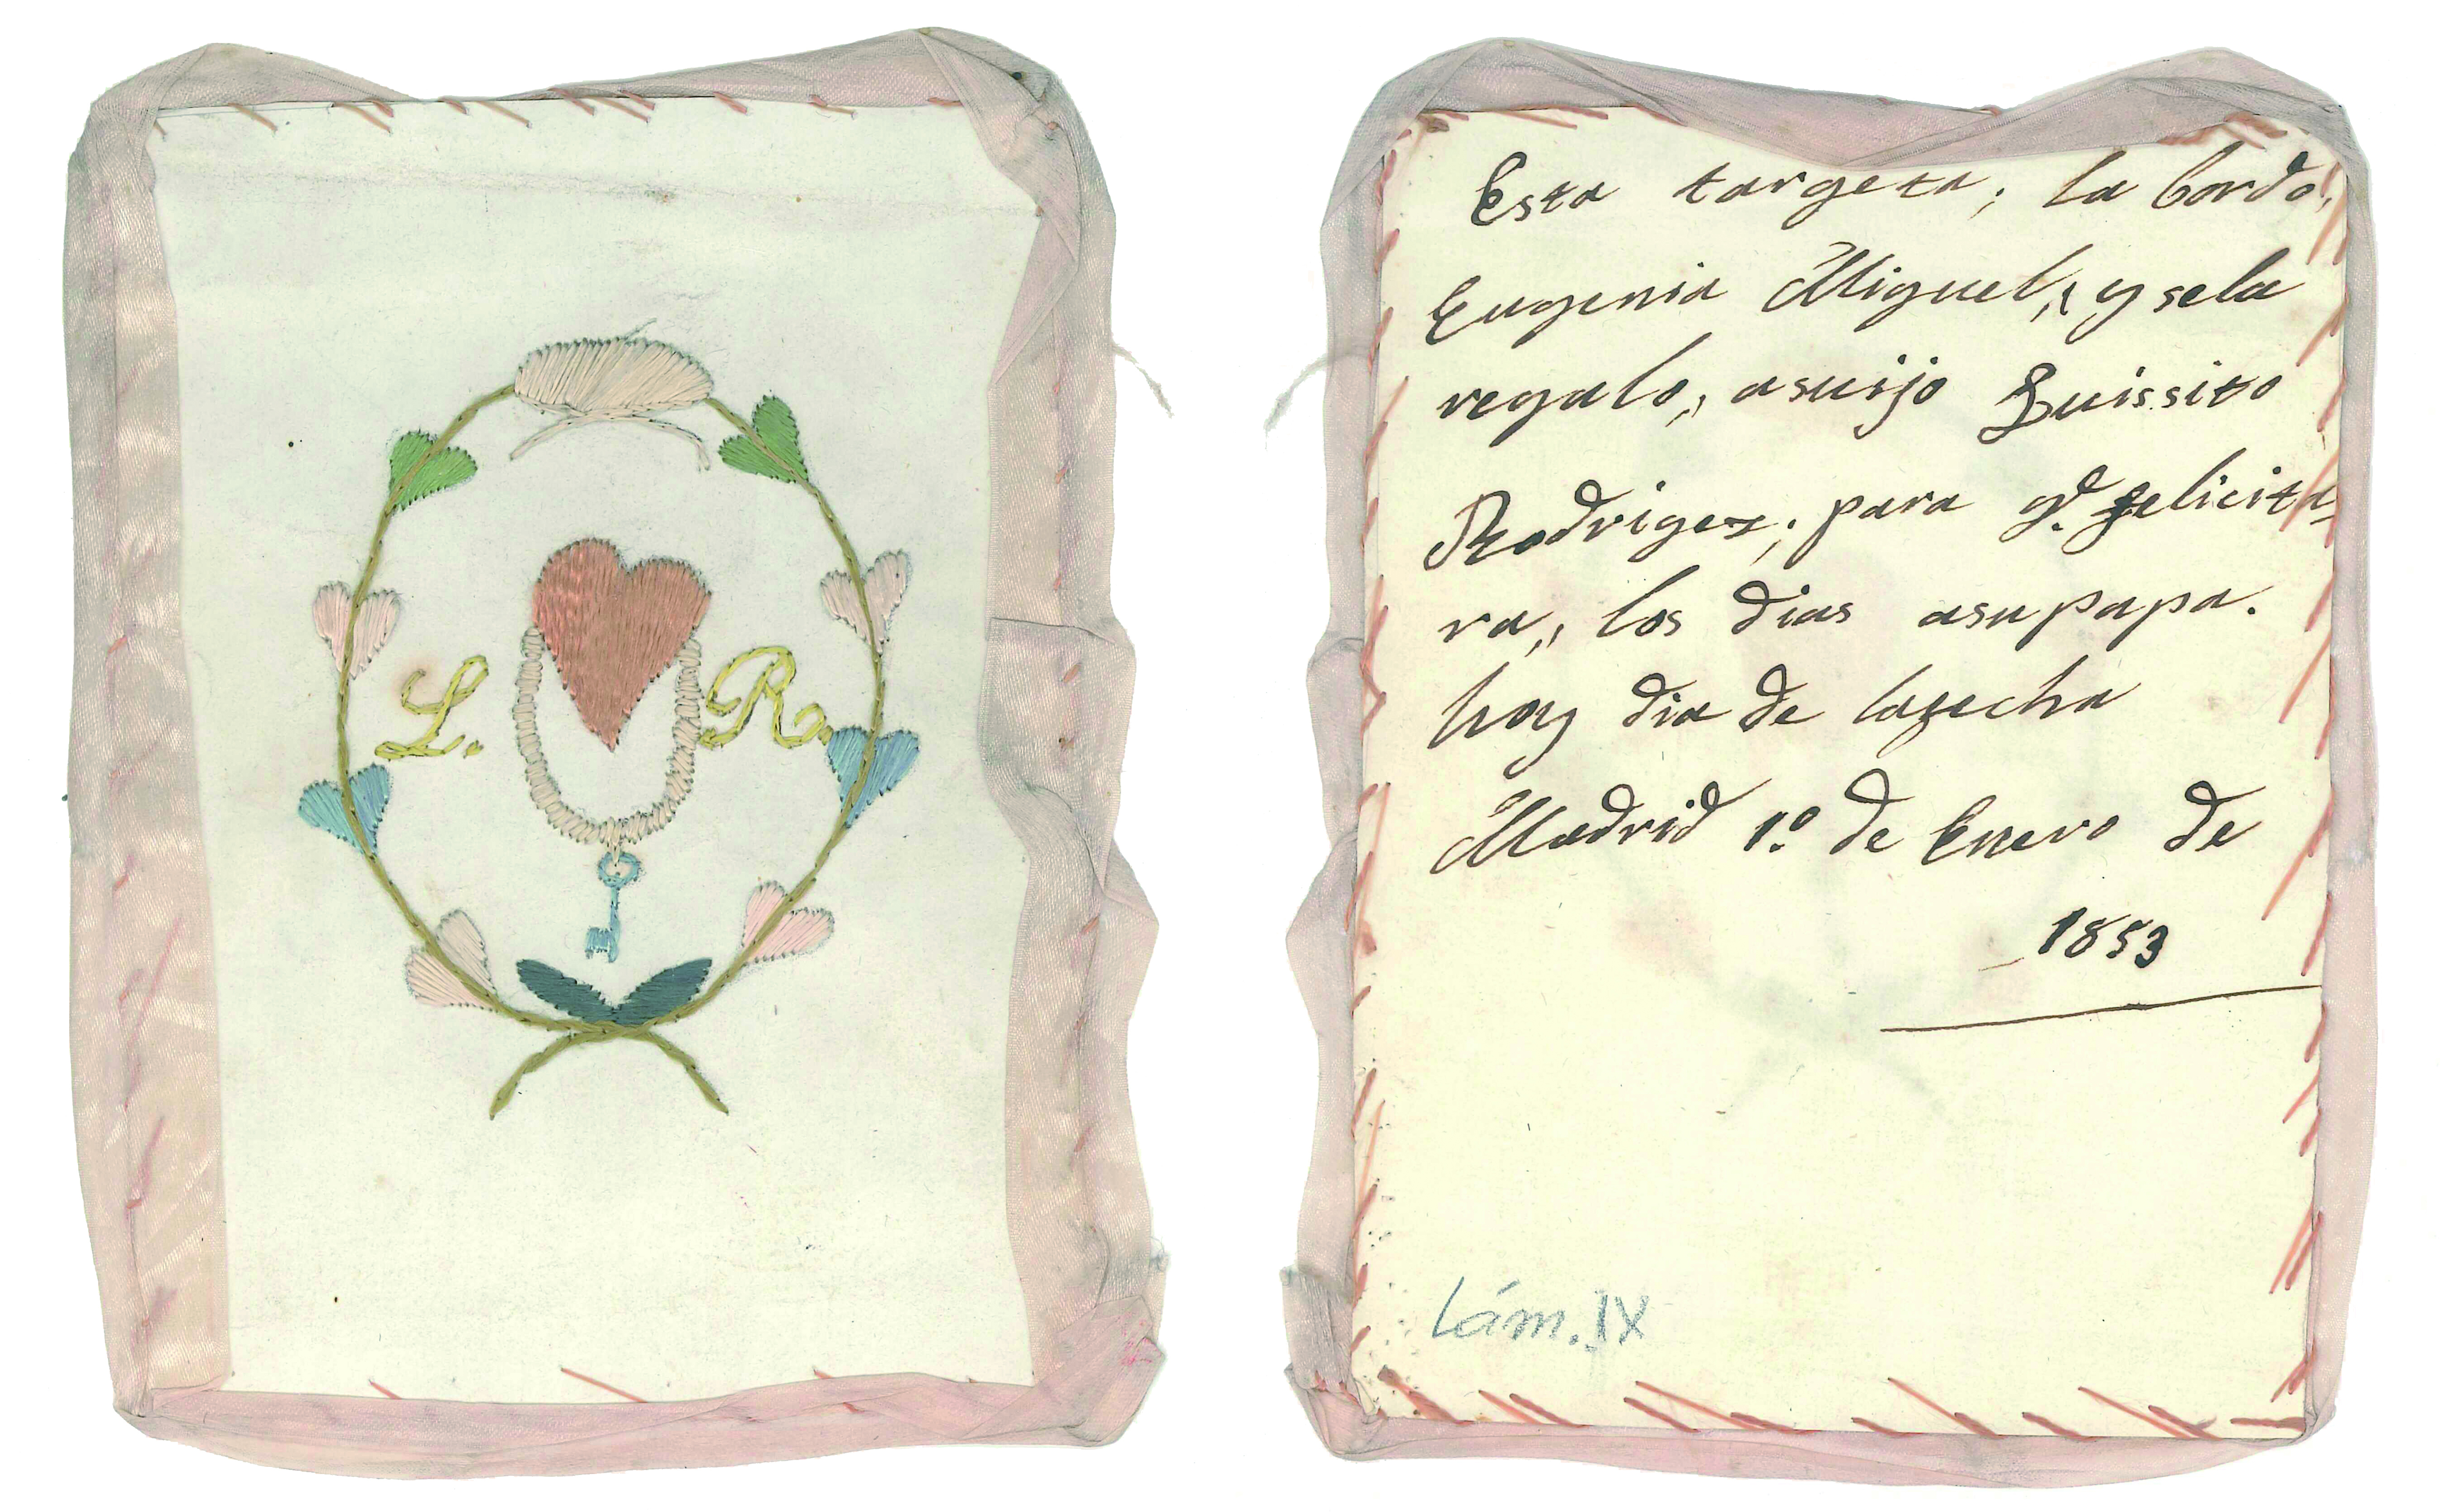 L. R.
Esta targeta; la bordo,
Eugenia Miguel,, y sela
regalo,, asuijo Luissito
Rodrigez; para q.e felicita-
ra,, los dias asupapa.
hoy dia de lafecha
Madrid 1º de Enero de
1853
Lám. IX